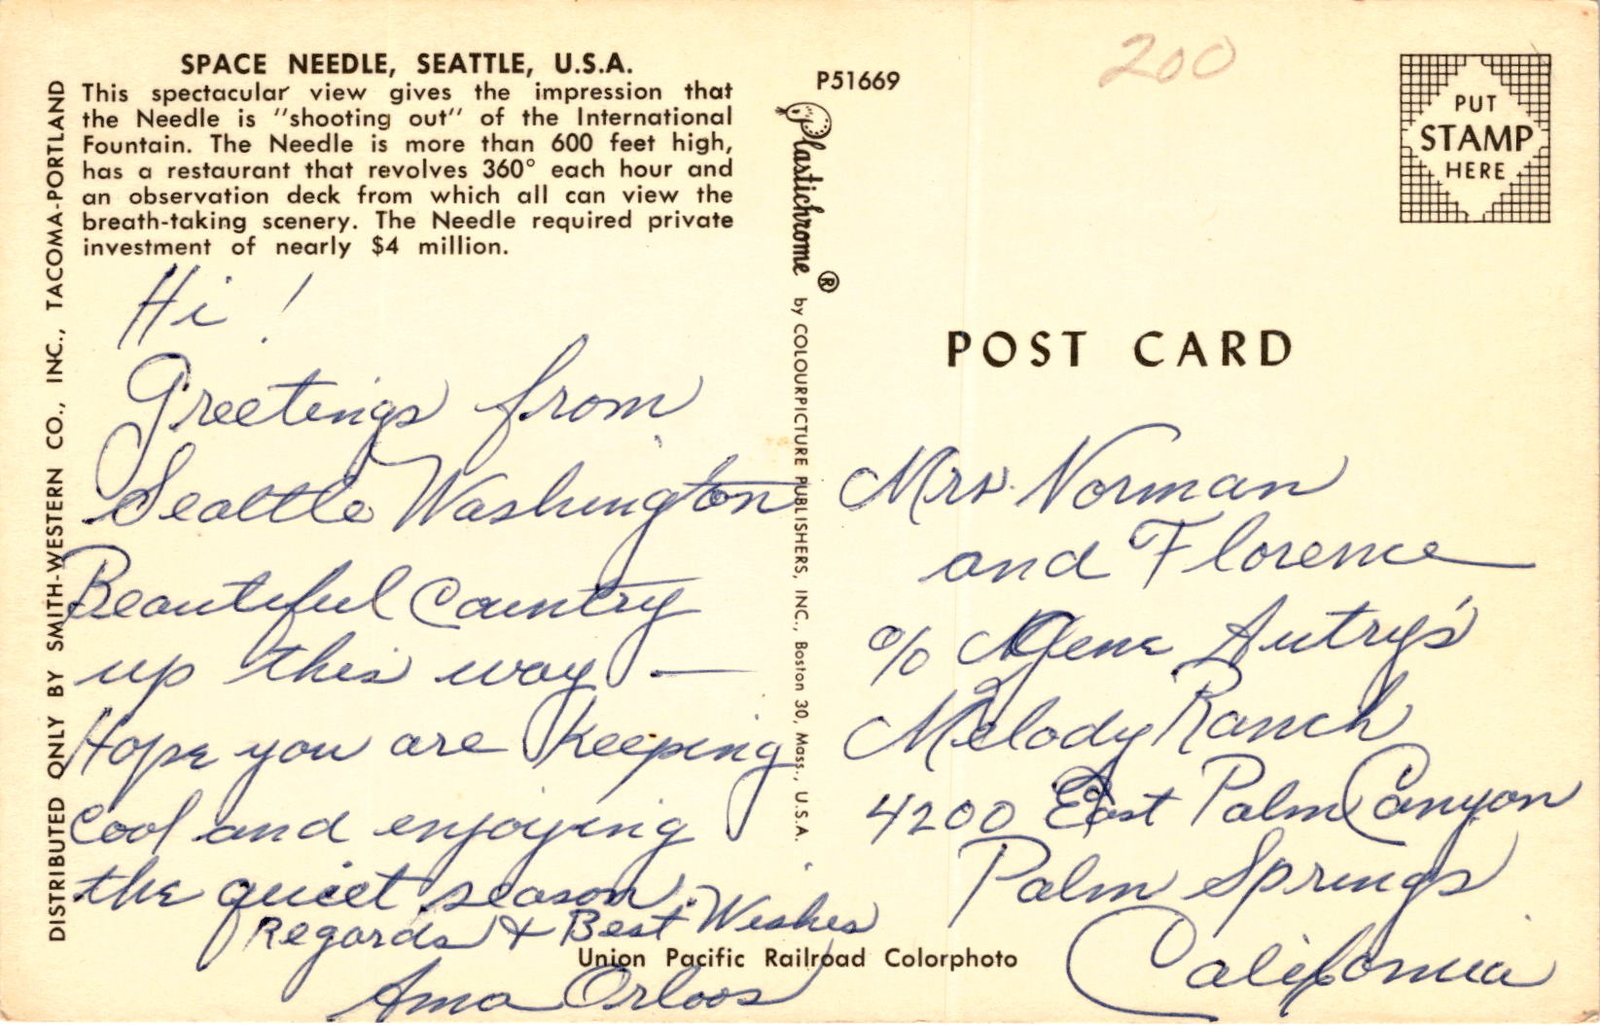 SPACE NEEDLE, SEATTLE, U.S.A.
This spectacular view gives the impression that
the Needle is "shooting out" of the International
Fountain. The Needle is more than 600 feet high,
has a restaurant that revolves 360° each hour and
an observation deck from which all can view the
breath-taking scenery. The Needle required private
investment of nearly $4 million.
Hi!
Greetings from
Seattle Washington
Beautiful Country
up this way —
Hope you are keeping
cool and enjoying
the quiet season.
Regards & Best Wishes
Orloos
DISTRIBUTED ONLY BY SMITH-WESTERN CO., INC., TACOMA-PORTLAND
P51669
Plastichrome ® by COLOURPICTURE PUBLISHERS, INC., Boston 30, Mass., U.S.A.
Union Pacific Railroad Colorphoto
200
PUT
STAMP
HERE
POST CARD
Mrs. Norman
and Florence
c/o Gene Autry's
Melody Ranch
4200 East Palm Canyon
Palm Springs
California